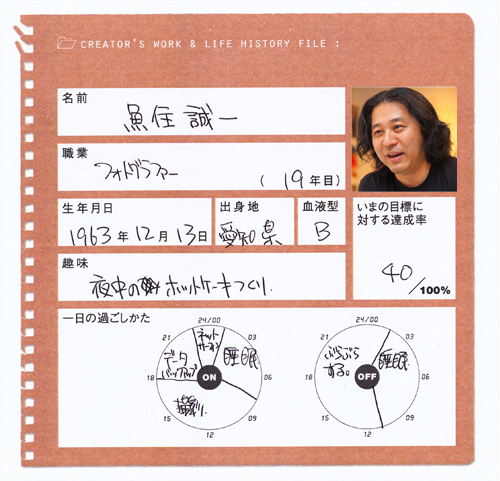 CREATOR'S WORK & LIFE HISTORY FILE :
名前
魚住 誠一
職業
フォトグラファー
( 19 年目)
生年月日
1963 年 12 月 13 日
出身地
愛知県
血液型
B
いまの目標に
対する達成率
40/100%
趣味
夜中の ホットケーキつくり.
一日の過ごしかた
24/00
03
06
09
12
15
18
21
ON
ネット
睡眠
データ
バックアップ
撮影.
24/00
03
06
09
12
15
18
21
OFF
ぶらぶら
する。
睡眠